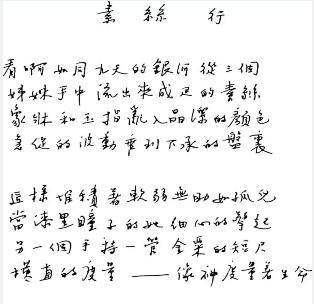 素絲行
看啊如同九天的銀河從三個
姊妹手中流出來成疋的素絲
象牙和玉指亂入晶深的顏色
急促的波動垂到下承的盤裏
這樣堆積著軟弱無助如孤兒
當漆黑瞳子的她細心的擎起
另一個手持一管金票的短尺
橫直的度量——像神度量著生命